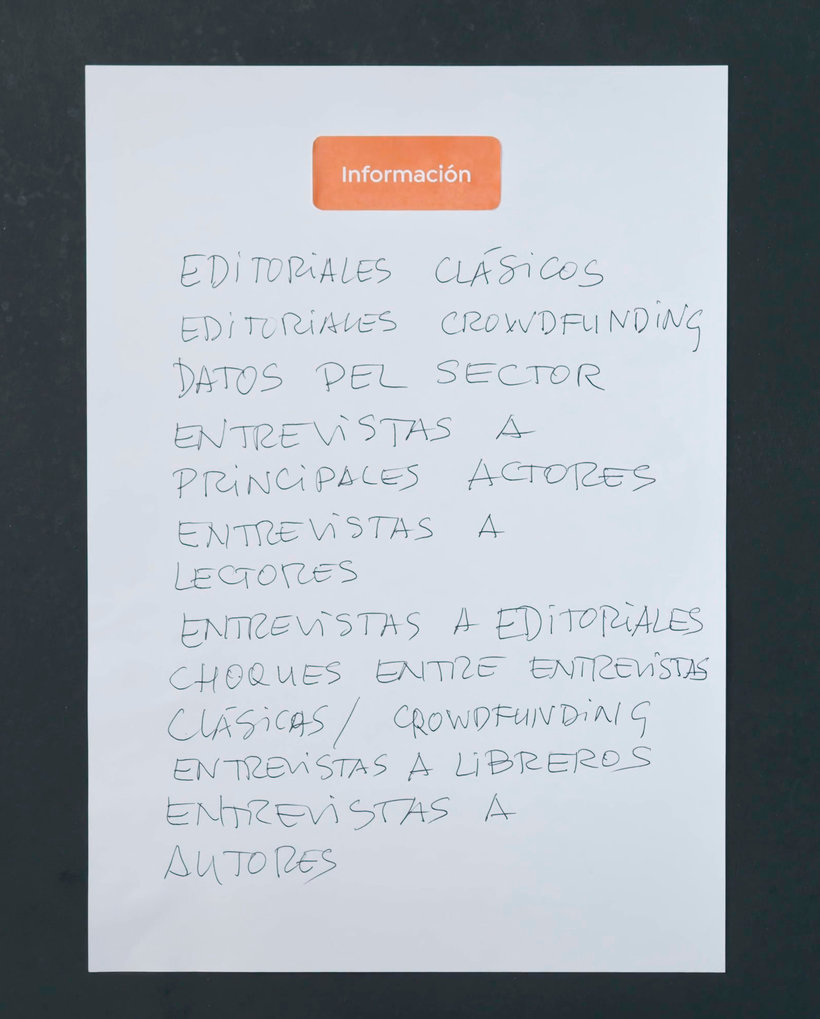 Información
EDITORIALES CLÁSICOS
EDITORIALES CROWDFUNDING
DATOS DEL SECTOR
ENTREVISTAS A
PRINCIPALES ACTORES
ENTREVISTAS A
LECTORES
ENTREVISTAS A EDITORIALES
CHOQUES ENTRE ENTREVISTAS
CLÁSICAS / CROWDFUNDING
ENTREVISTAS A LIBREROS
ENTREVISTAS A
AUTORES